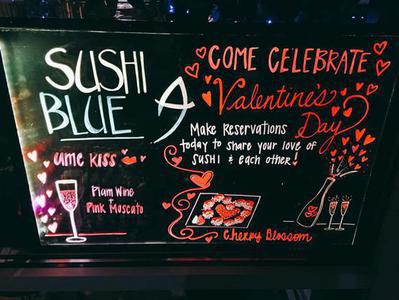 SUSHI
BLUE
UME KISS
Plum Wine
+
Pink Moscato
COME CELEBRATE
Valentine's
Day
Make Reservations
today to share your love of
SUSHI & each other!
Cherry Blossom